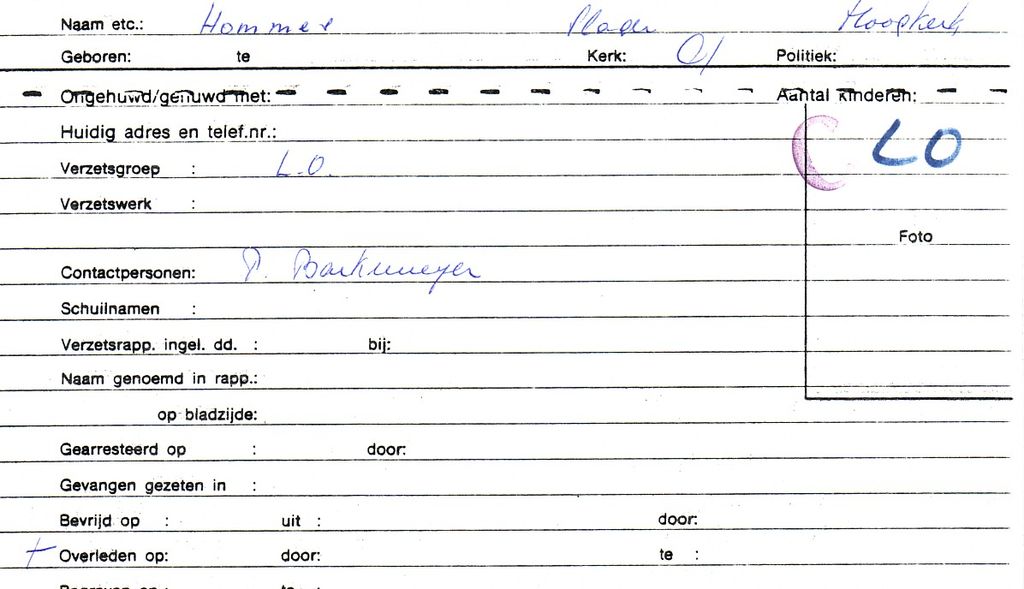 Naam etc.: Hommes
Geboren: te Kerk: Politiek:
Ongehuwd/gehuwd met: Aantal kinderen:
Huidig adres en telef.nr.:
LO
Verzetsgroep : L.O.
Verzetswerk :
Foto
Contactpersonen: P. Barkmeyer
Schuilnamen :
Verzetsrapp. ingel. dd. : bij:
Naam genoemd in rapp.:
op bladzijde:
Gearresteerd op : door:
Gevangen gezeten in :
Bevrijd op : uit : door:
Overleden op: door: te :